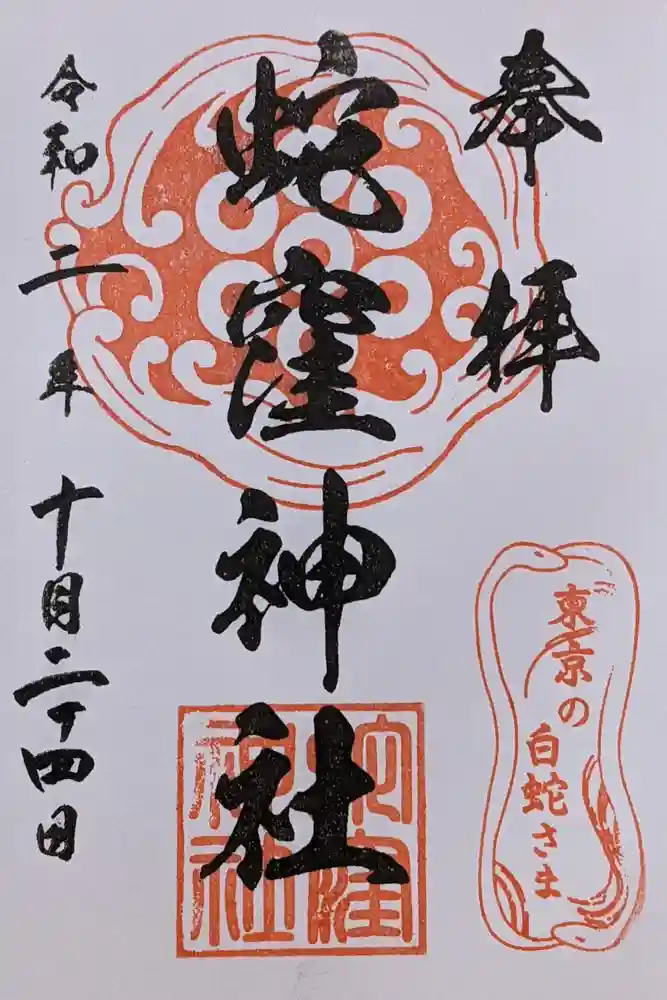 奉拝
蛇窪神社
令和二年十月二十四日
東京の
白蛇さま
蛇窪
神社